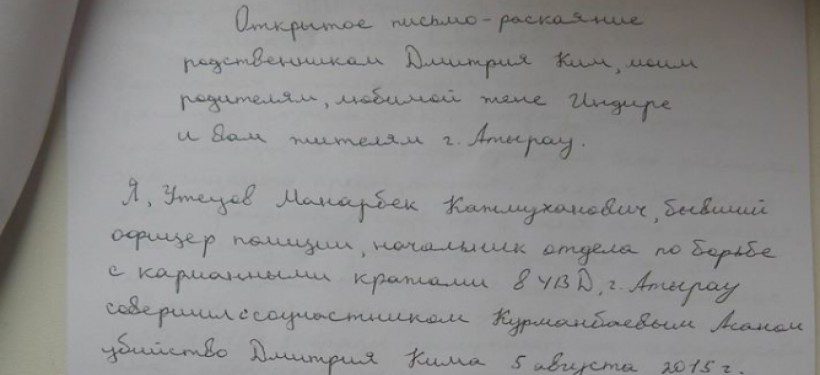 Открытое письмо-раскаяние
родственникам Дмитрия Ким, моим
родителям, любимой жене Индире
и Вам жителям г. Атырау.
Я, Утецов Манарбек Катмуханович, бывший
офицер полиции, начальник отдела по борьбе
с карманными кражами в УВД, г. Атырау
совершил с соучастником Курманбаевым Асаном
убийство Дмитрия Кима 5 августа 2015 г.